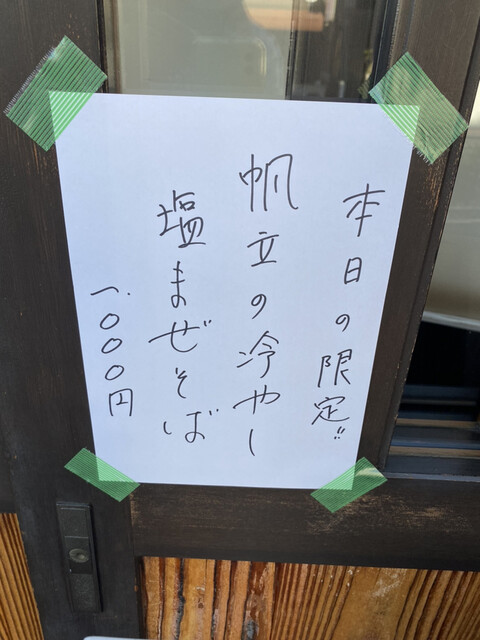 本日の限定!!
帆立の冷やし
塩まぜそば
一.〇〇〇円